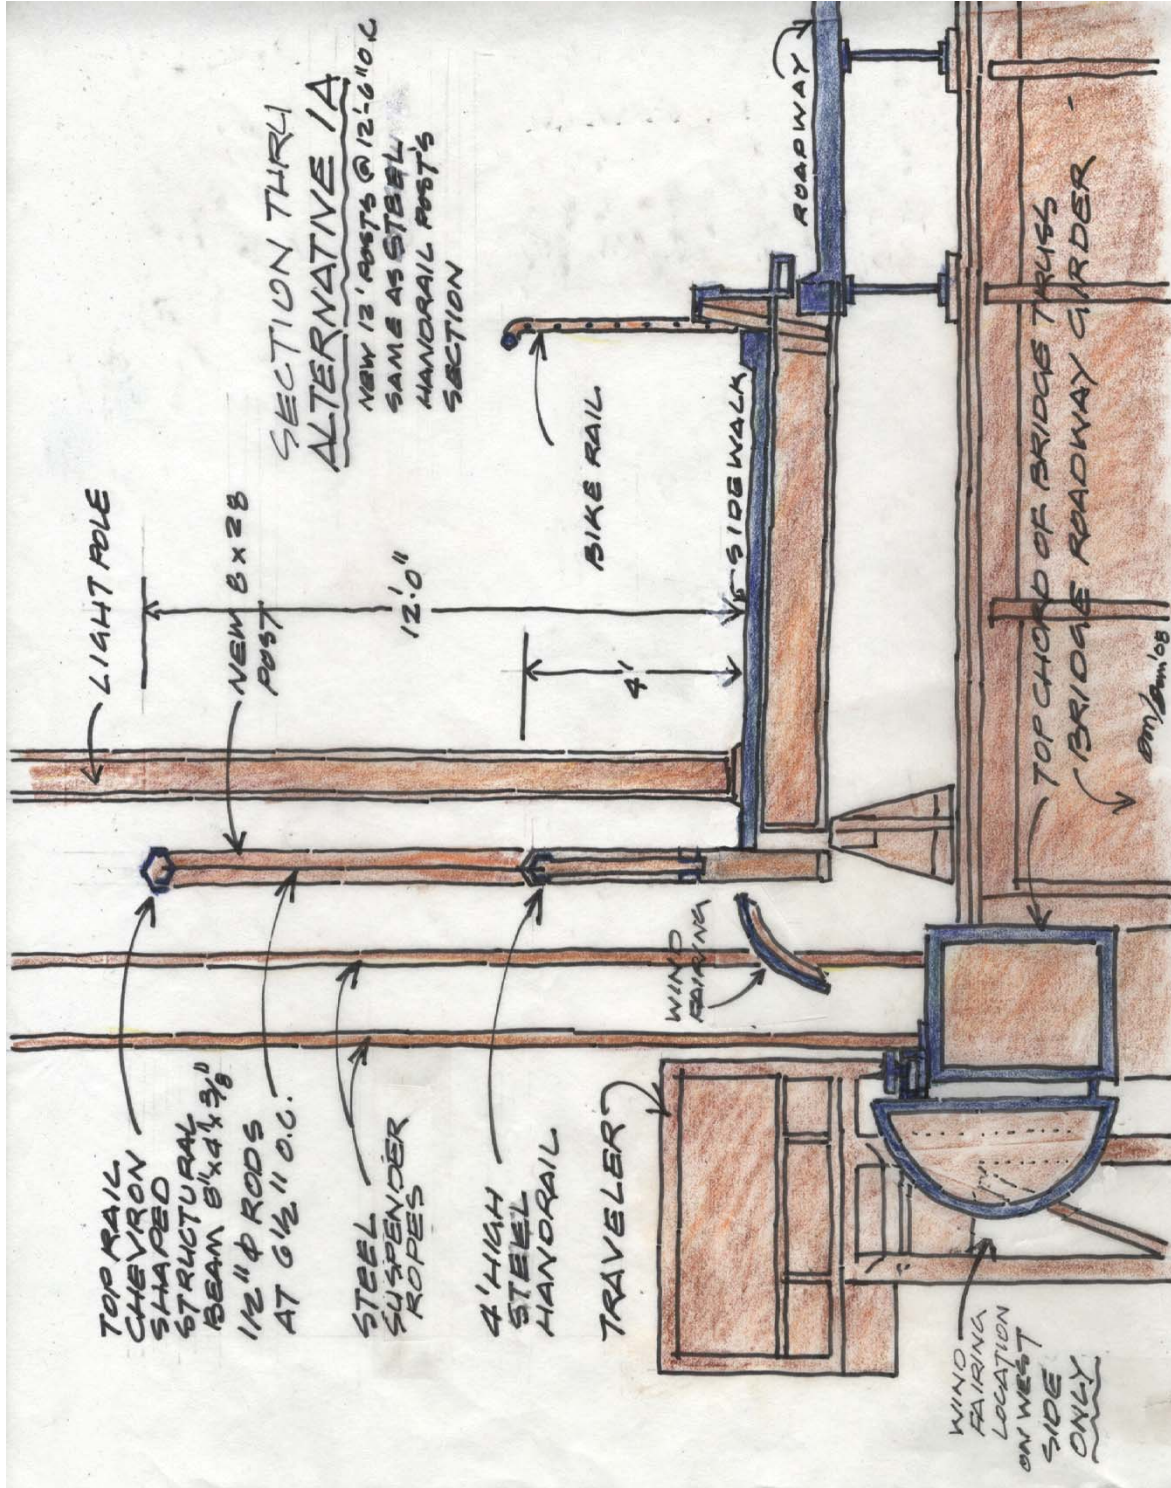 SECTION THRU
ALTERNATIVE 1A
NEW 12' POSTS @ 12'-6" O.C
SAME AS STEEL
HANDRAIL POST'S
SECTION
LIGHT POLE
NEW 8 x 28
POST
12'.0"
4'
BIKE RAIL
SIDEWALK
ROADWAY
TOP RAIL
CHEVRON
SHAPED
STRUCTURAL
BEAM 8"x4"x3/8"
1/2" φ RODS
AT 6 1/2" O.C.
STEEL
SUSPENDER
ROPES
4' HIGH
STEEL
HANDRAIL
WIND
FAIRING
TRAVELER
WIND
FAIRING
LOCATION
ON WEST
SIDE
ONLY
TOP CHORD OF BRIDGE TRUSS
BRIDGE ROADWAY GIRDER